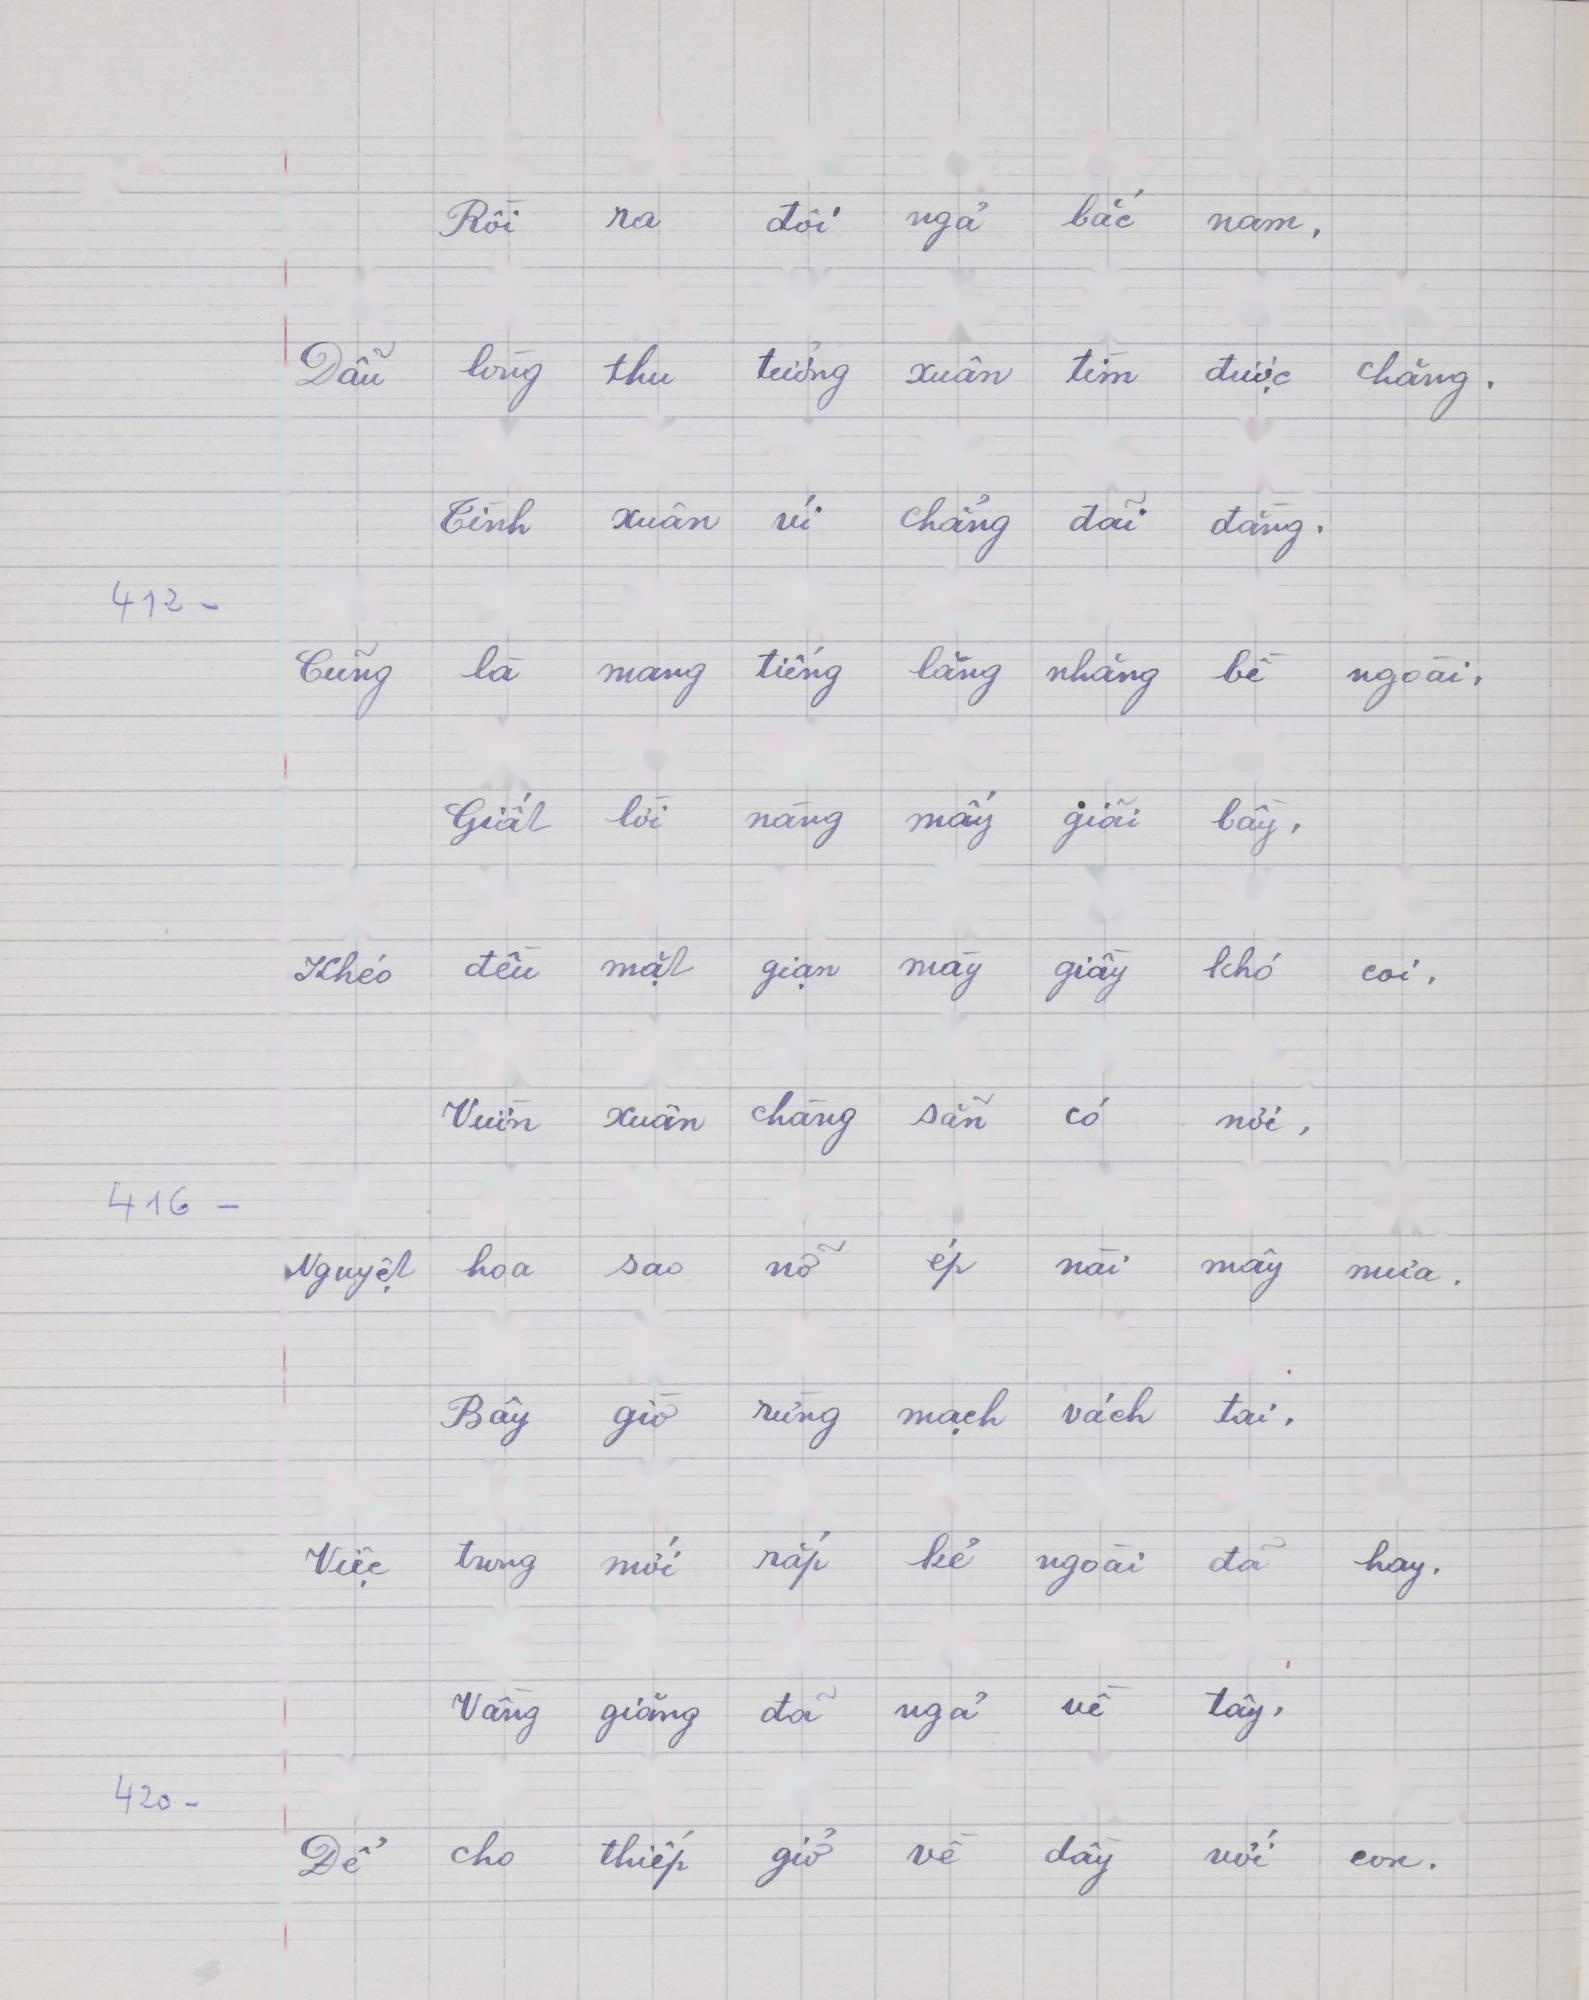 Rồi ra đôi ngả bắc nam,
Dẫu lòng thu tưởng xuân tìm được chăng.
Tình xuân ví chẳng đãi đằng.
412-
Cũng là mang tiếng lăng nhăng bề ngoài.
Giắt lời nàng mấy giãi bầy,
Khéo đều mặt giạn mày giầy khó coi.
Vườn xuân chàng sẵn có nơi,
416 -
Nguyệt hoa sao nỡ ép nài mây mưa.
Bây giờ rừng mạch vách tai.
Việc trong mới rắp kẻ ngoài đã hay.
Vầng giăng đã ngả về tây.
420-
Để cho thiếp giở về dầy với con.